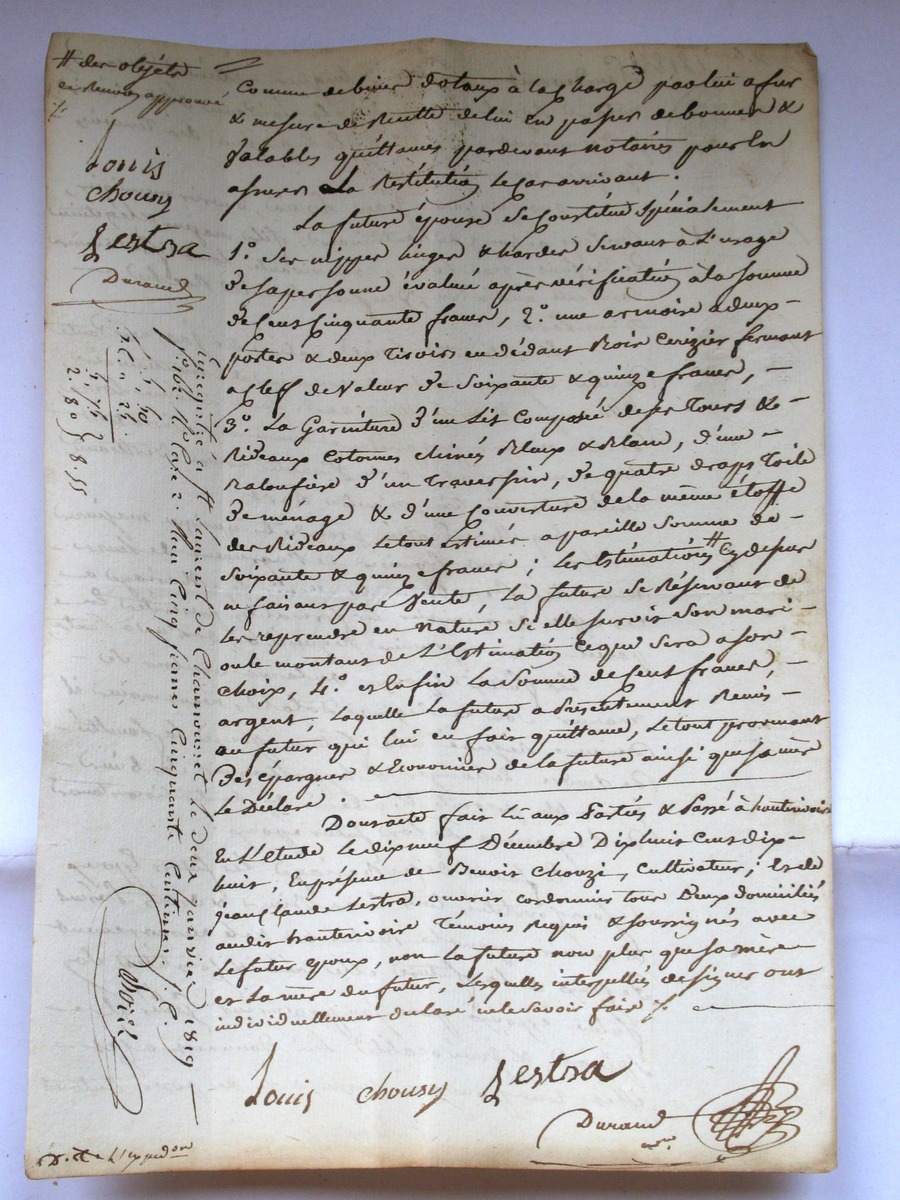 # des objets
et renvoi approuvé
Louis
Chouzy
Lestra
Durand
comme de biens dotaux à la charge par lui a fur
& mesure de recette de lui en passer de bonnes &
valables quittances pardevant notaires pour en
assurer la restitution le cas arrivant.
La future épouse se constitue spécialement
1.° ses nippes linges & hardes servant à l'usage
de sa personne évalué après vérification à la somme
de cent cinquante francs, 2.° une armoire a deux
portes & deux tiroirs en dédant bois cerizier fermant
a cleff de valeur de soixante & quinze francs, –
3.° La Garniture d'un Lit composée de ses tours & –
rideaux cotonnes chinés bleux & blanc, d'une –
balouffière d'un traversin, de quatre draps toile
de ménage & d'une couverture de la même étoffe
des rideaux le tout estimés a pareille somme de –
soixante & quinze francs; les estimations # cy dessus
ne faisant pas vente, la future se réservant de
les reprendre en nature si elle survit son mari
ou le montant de l'estimation ce que sera a son –
choix, 4.° et enfin la somme de cent francs, –
argent, laquelle la future a présentement remis –
au futur qui lui en fait quittance, le tout provenant
des épargnes & economies de la future ainsi que sa mère
le déclare.
Dont acte fait lu aux parties & passé à hauterivoire
en l'étude le dix neuf décembre dix huit cent dix –
huit, en présence de Benoit Chouzi, cultivateur; et de
jean claude Lestra, ouvrier cordonnier tous deux domiciliés
audit hauterivoire témoins requis & soussignés avec
le futur epoux, non la future non plus que sa mère
et la mère du futur, lesquelles interpellés de signer ont
individuellement declaré ne le savoir faire ./.
Louis Chouzy Lestra
Durand
Enregistré à St. Laurent de Chamousset le deux janvier 1819
f.° 162 r.° case 2. Reçu cinq francs cinquante centimes.
5, 50
2, 75
2. 80
8, 55